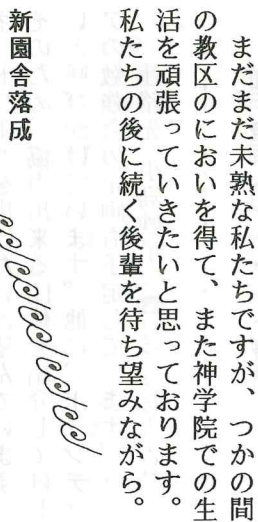 まだまだ未熟な私たちですが、つかの間
の教区のにおいを得て、また神学院での生
活を頑張っていきたいと思っております。
私たちの後に続く後輩を待ち望みながら。
新園舎落成